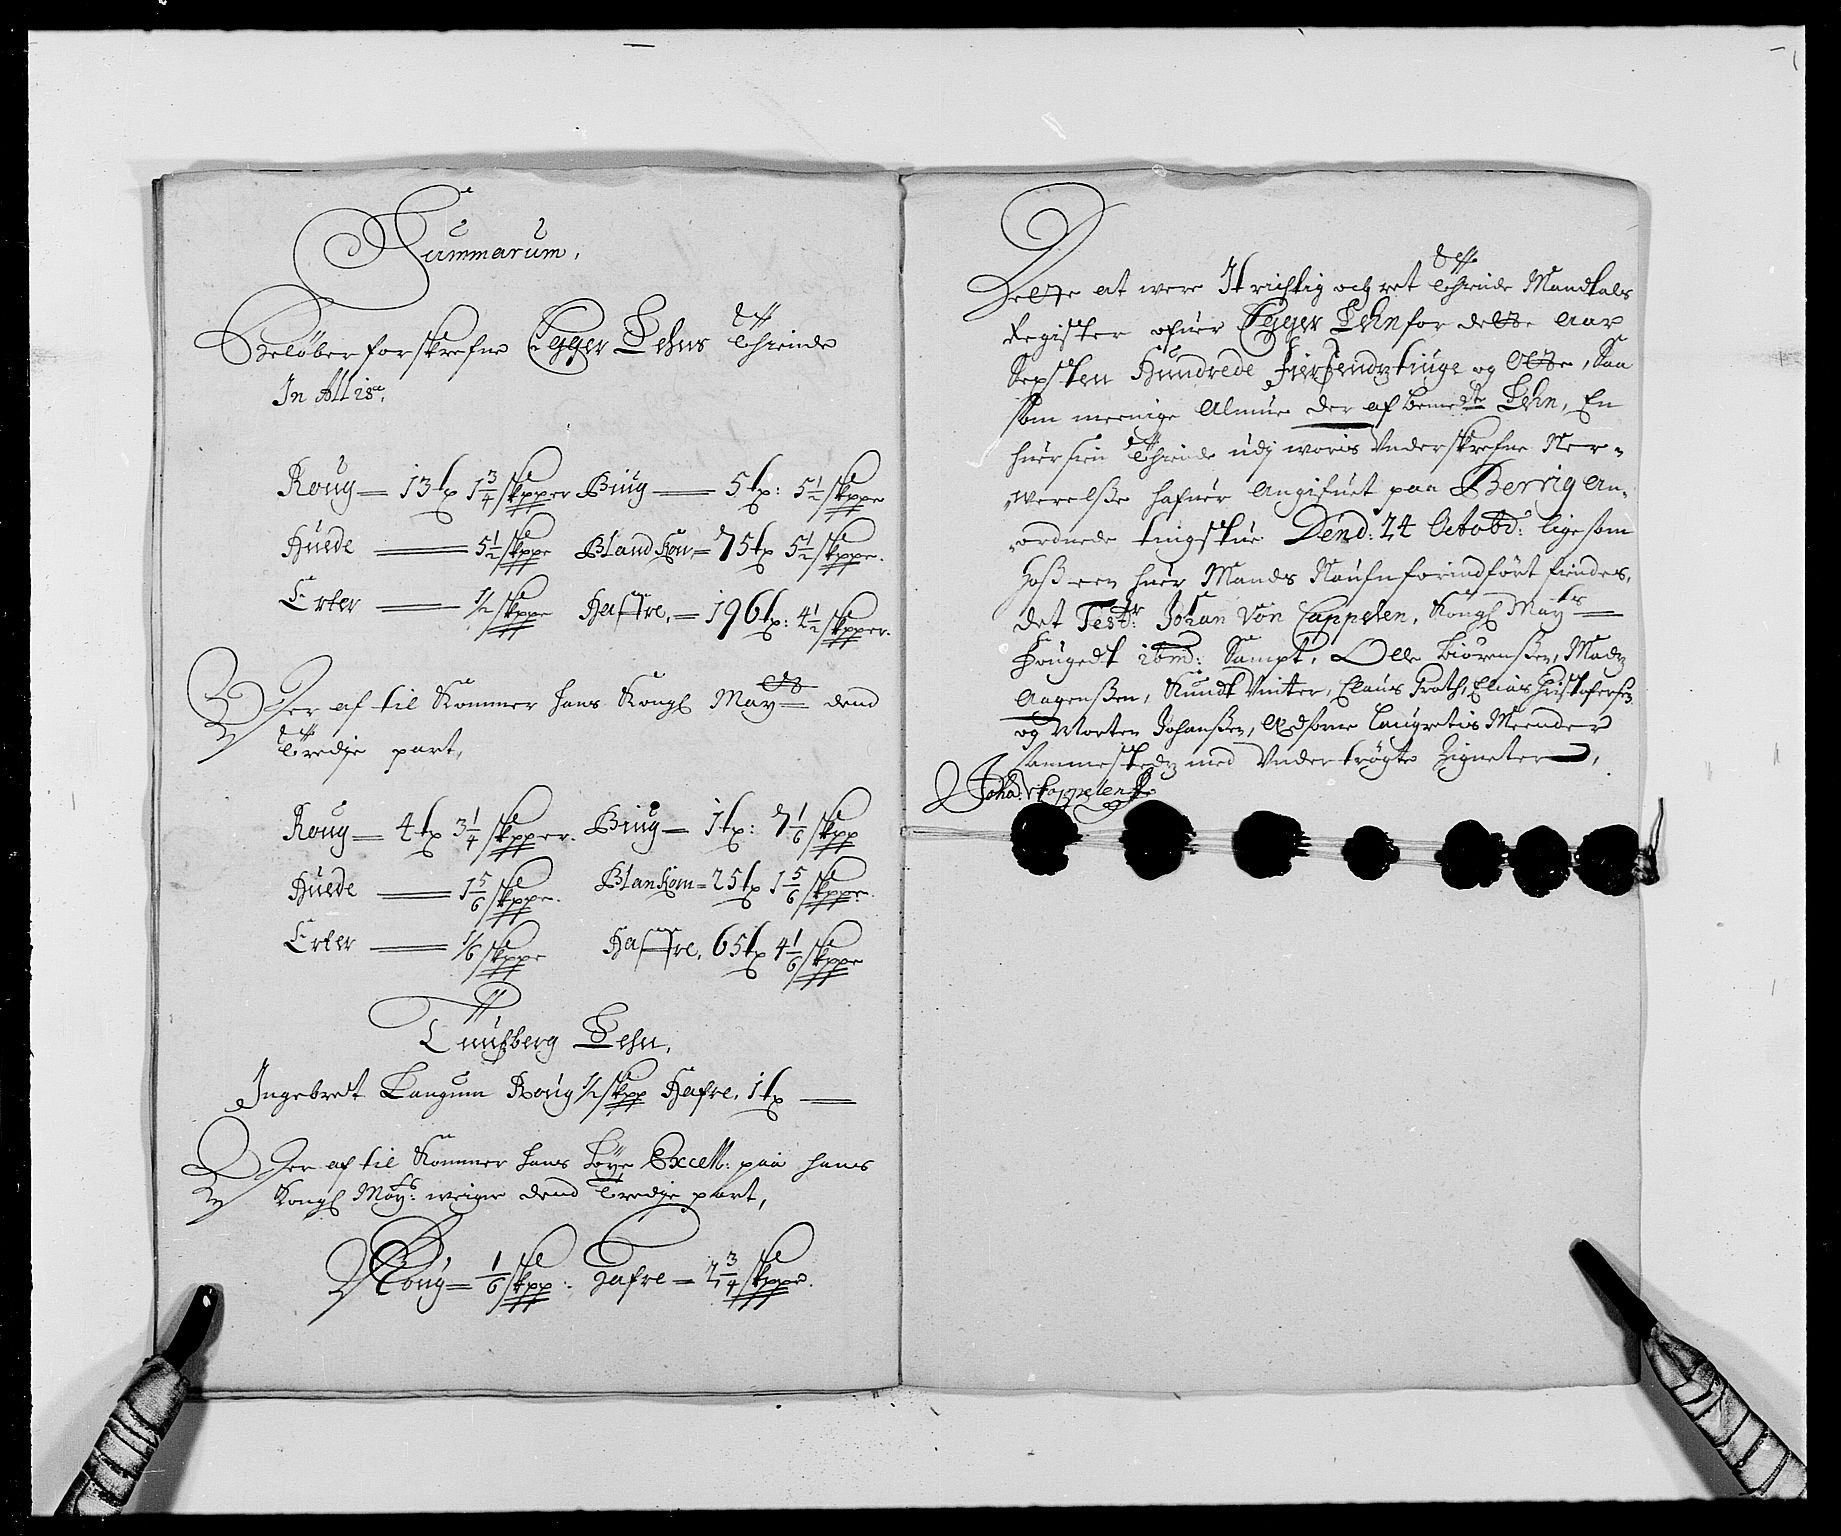 Summarum,
Beløber forskrefne Egger Lehns Thiende
In Allis,
Roug — 13 tr 1 3/4 skpper Biug — 5 tr: 5 1/2 skppe
Huede — 5 1/2 skppe Bland Korn — 75 tr 5 1/2 skppe.
Erter — 1/2 skppe Haffre, — 196 tr: 4 1/2 skpper.
Der af til Kommer hans Kongl May dend
Tredje part,
Roug — 4 tr 3 1/4 skpper. Biug — 1 tr: 7 1/6 skpp
Huede — 1 5/6 skppe. Blankorn — 25 tr 1 5/6 skppe.
Erter — 1/6 skppe Haffre, 65 tr 4 1/6 skppe
Tunsberg Lehn,
Ingebredt Langum Roug 1/2 skpp Hafre, 1 tr —
Der af til Kommer hans Høye Excell: paa hans
Kongl May: weigne dend Tredje part,
Roug — 1/6 skpp: Hafre — 2 3/4 skppe.
Dette at were It richtig och ret Thiende Mandtals
Register ofuer Egger Lehn for dette Aar
Sexsten Hundrede Fiersendztiuge og Otte, Saa
som meenige Almue der af bemedte Lehn, En
huer sin Thiende udj woris Underskrefne Ner-
werelsse hafuer Angifuet paa Berrig An-
ordnede tingstue Dend: 24 Octobd: lige som
Hoss een huer Mands Naufn forindført findes,
det Test: Johan Von Cappelen, Kongl May —
Fougedt ibm: Sampt, Olle Biørenssen, Madz
Aagenssen, Knudt Vinter, Claus Groth, Elias Christofersen
og Morten Johanssen, Edsorne Laugretis Meender
sammestedz med Undertrøgte Zigneter,
Joha: v Cappelen